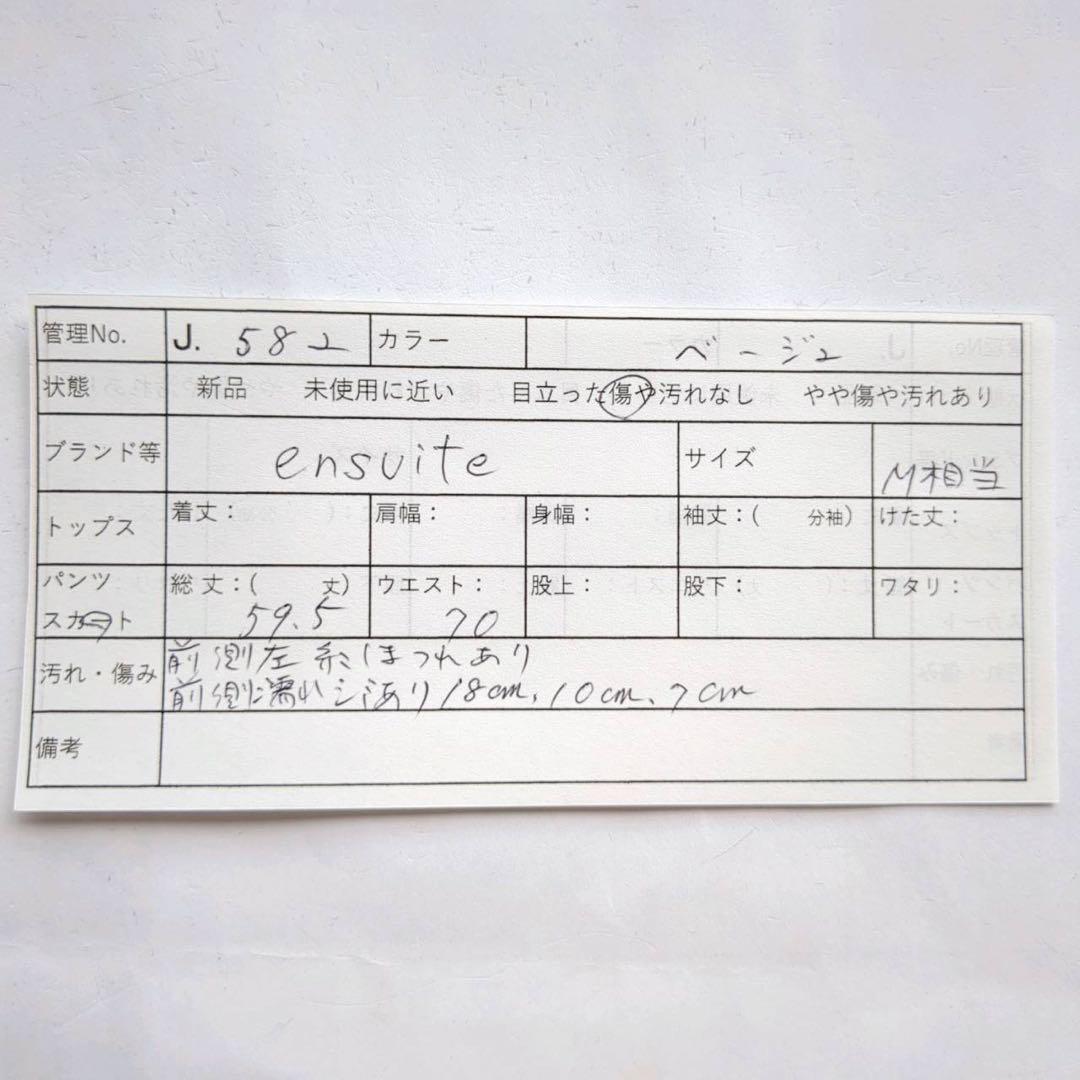 管理No. J. 582 カラー ベージュ
状態 新品 未使用に近い 目立った傷や汚れなし やや傷や汚れあり
ブランド等 ensuite サイズ M相当
トップス 着丈： 肩幅： 身幅： 袖丈：( 分袖) けた丈：
パンツ 総丈：( 丈) ウエスト： 股上： 股下： ワタリ：
スカート 59.5 70
前側左糸ほつれあり
汚れ・傷み
前側に濡れジミあり 18cm、10cm、7cm
備考